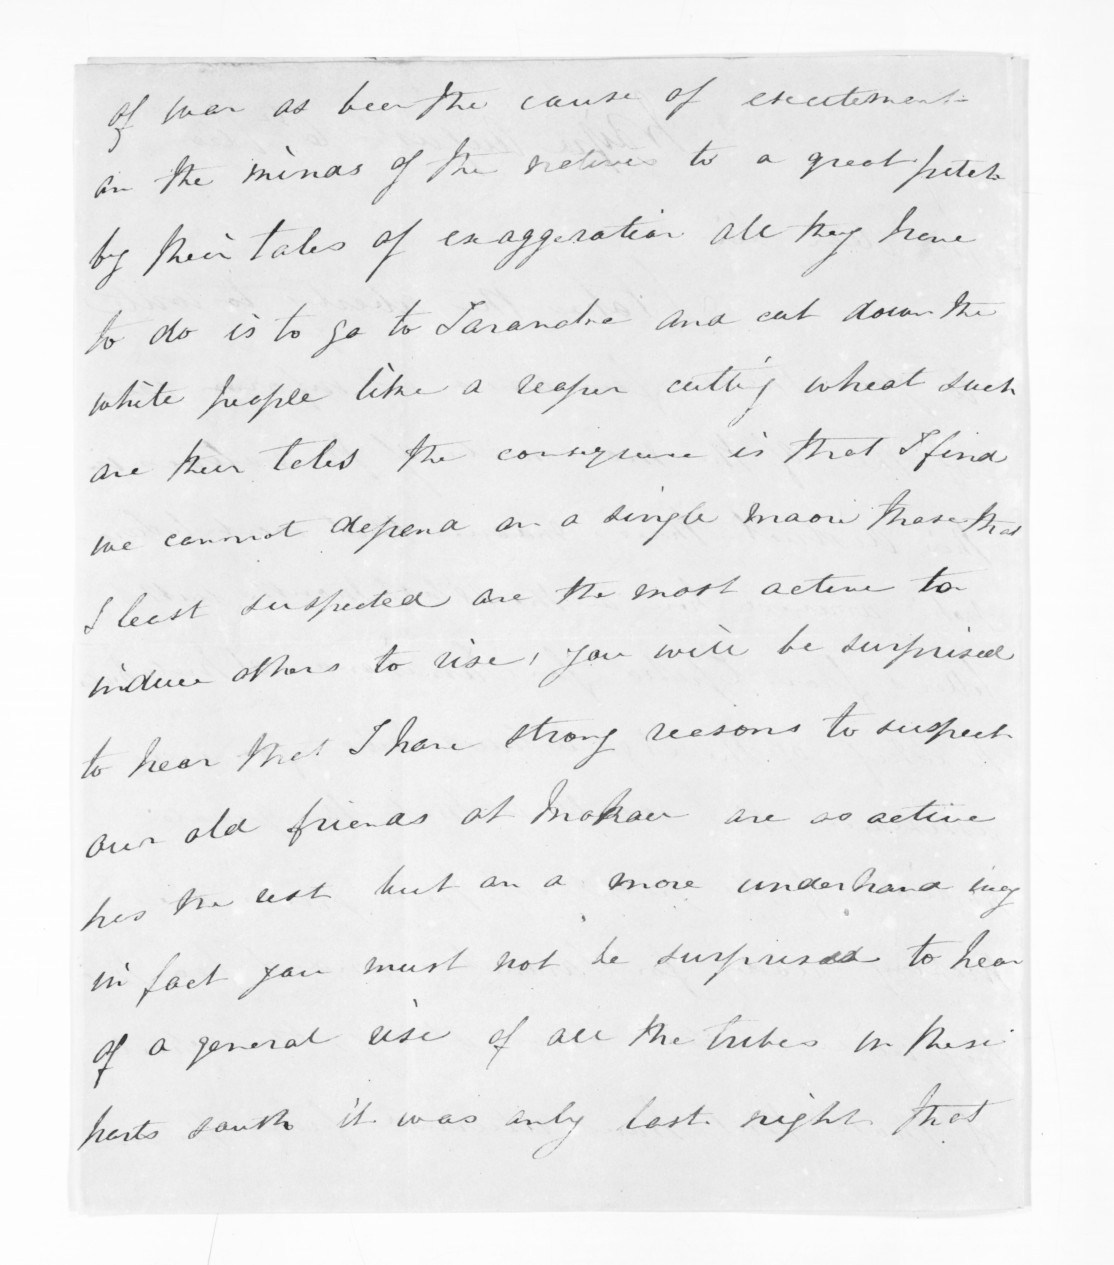 of war as been the cause of excitement
on the minds of the natives to a great pitch
by their tales of exaggeration all they have
to do is to go to Taranake and cut down the
white people like a reaper cutting wheat such
are their tales the consequence is that I find
we cannot depend on a single maori those that
I least suspected are the most active to
induce others to rise, you will be surprised
to hear that I have strong reasons to suspect
our old friends at Mokau are as active
has the rest but on a more underhand way
in fact you must not be surprised to hear
of a general rise of all the tribes in these
parts south it was only last night that